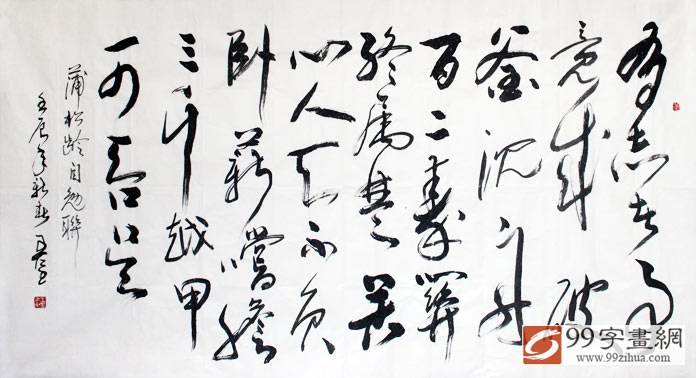 有志者事
竟成破
釜沉舟
百二秦關
終屬楚苦
心人天不負
卧薪嚐膽
三千越甲
可吞吴
蒲松齡自勉聯
壬辰年新春
99字畫網
www.99zihua.com